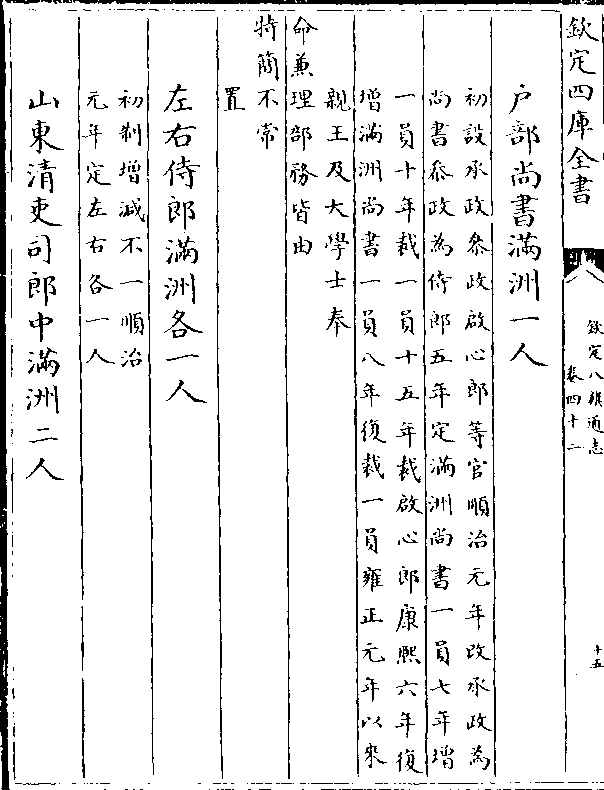 欽定四庫全書
欽定八旗通志
卷四十二
十五
户部尚書滿洲一人
初設承政叅政啟心郎等官順治元年改承政為
尚書叅政為侍郎五年定滿洲尚書一員七年增
一員十年裁一員十五年裁啟心郎康熙六年復
增滿洲尚書一員八年復裁一員雍正元年以來
親王及大學士奉
命兼理部務皆由
特簡不常
置
左右侍郎滿洲各一人
初制增減不一順治
元年定左右各一人
山東清吏司郎中滿洲二人